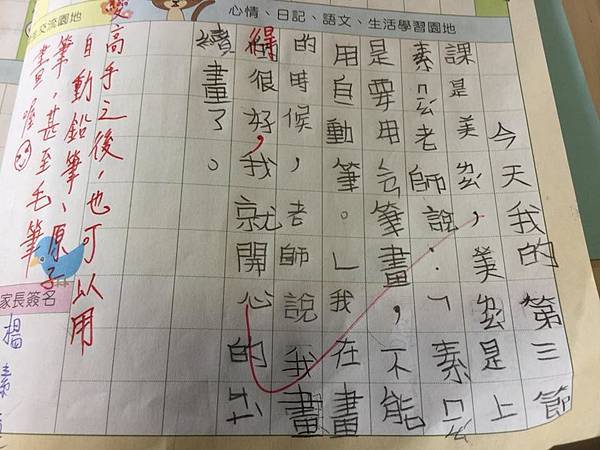 交流園地
心情、日記、語文、生活學習園地
今天我的第三節
課是美勞，美勞是上
素ㄇㄠ老師說：「素ㄇㄠ
是要用筆畫，不能
用自動筆。」我在畫
的時候，老師說我畫
得很好，我就開心的
續畫了。
變高手之後，也可以用
自動鉛筆、原子
筆，甚至毛筆
畫喔
家長簽名
楊素